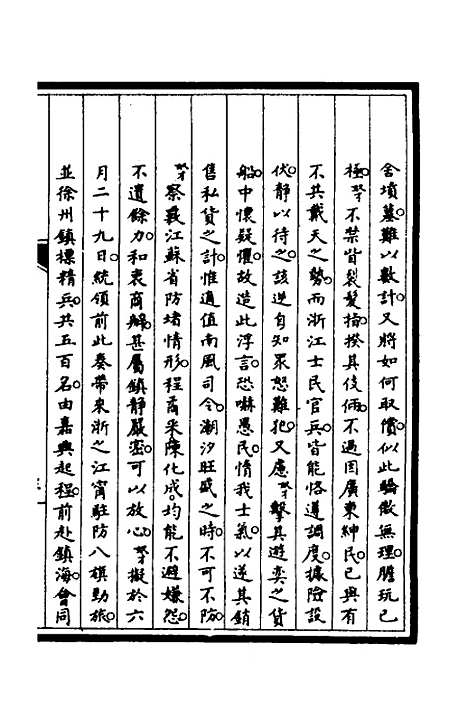 舍墳墓難以數計又將如何取償似此驕傲無理膽玩已
極奴才不禁眥裂髮指揆其伎倆不過因廣東紳民已與有
不共戴天之勢而浙江士民官兵皆能恪遵調度據險設
伏靜以待之該逆自知眾怒難犯又慮奴才擊其遊奕之貨
船中懷疑懼故造此浮言恐嚇愚民惰我士氣以遂其銷
售私貨之計惟適值南風司令潮汐旺盛之時不可不防
奴才察覈江蘇省防堵情形程矞采陳化成均能不避嫌怨
不遺餘力和衷商辦甚屬鎮靜嚴密可以放心奴才擬於六
月二十九日統領前此奏帶來浙之江甯駐防八旗勁旅
並徐州鎮標精兵共五百名由嘉興起程前赴鎮海會同